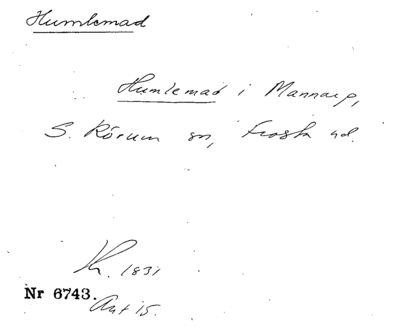 Humlemad
Humlemad i Mannarp,
S. Rörum sn, Frosta hd.
Kh. 1831
Nr 6743.
Akt 15.